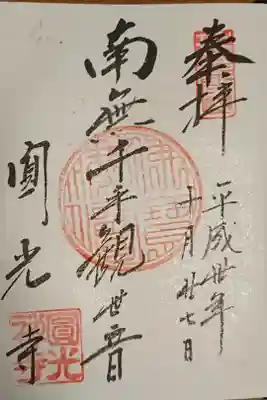 奉拝
平成卅年
十月廿七日
南無千手観世音
圓光寺